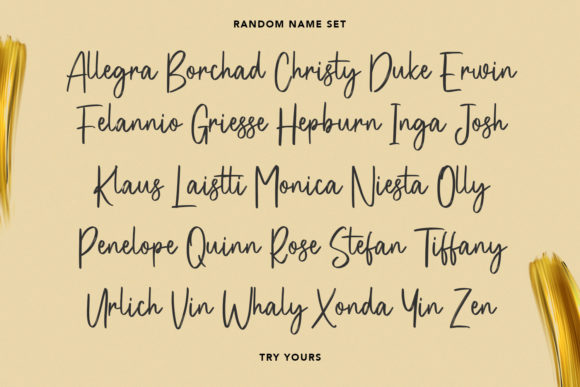 RANDOM NAME SET
Allegra Borchad Christy Duke Erwin
Felannio Griesse Hepburn Inga Josh
Klaus Laistti Monica Niesta Olly
Penelope Quinn Rose Stefan Tiffany
Urlich Vin Whaly Xonda Yin Zen
TRY YOURS